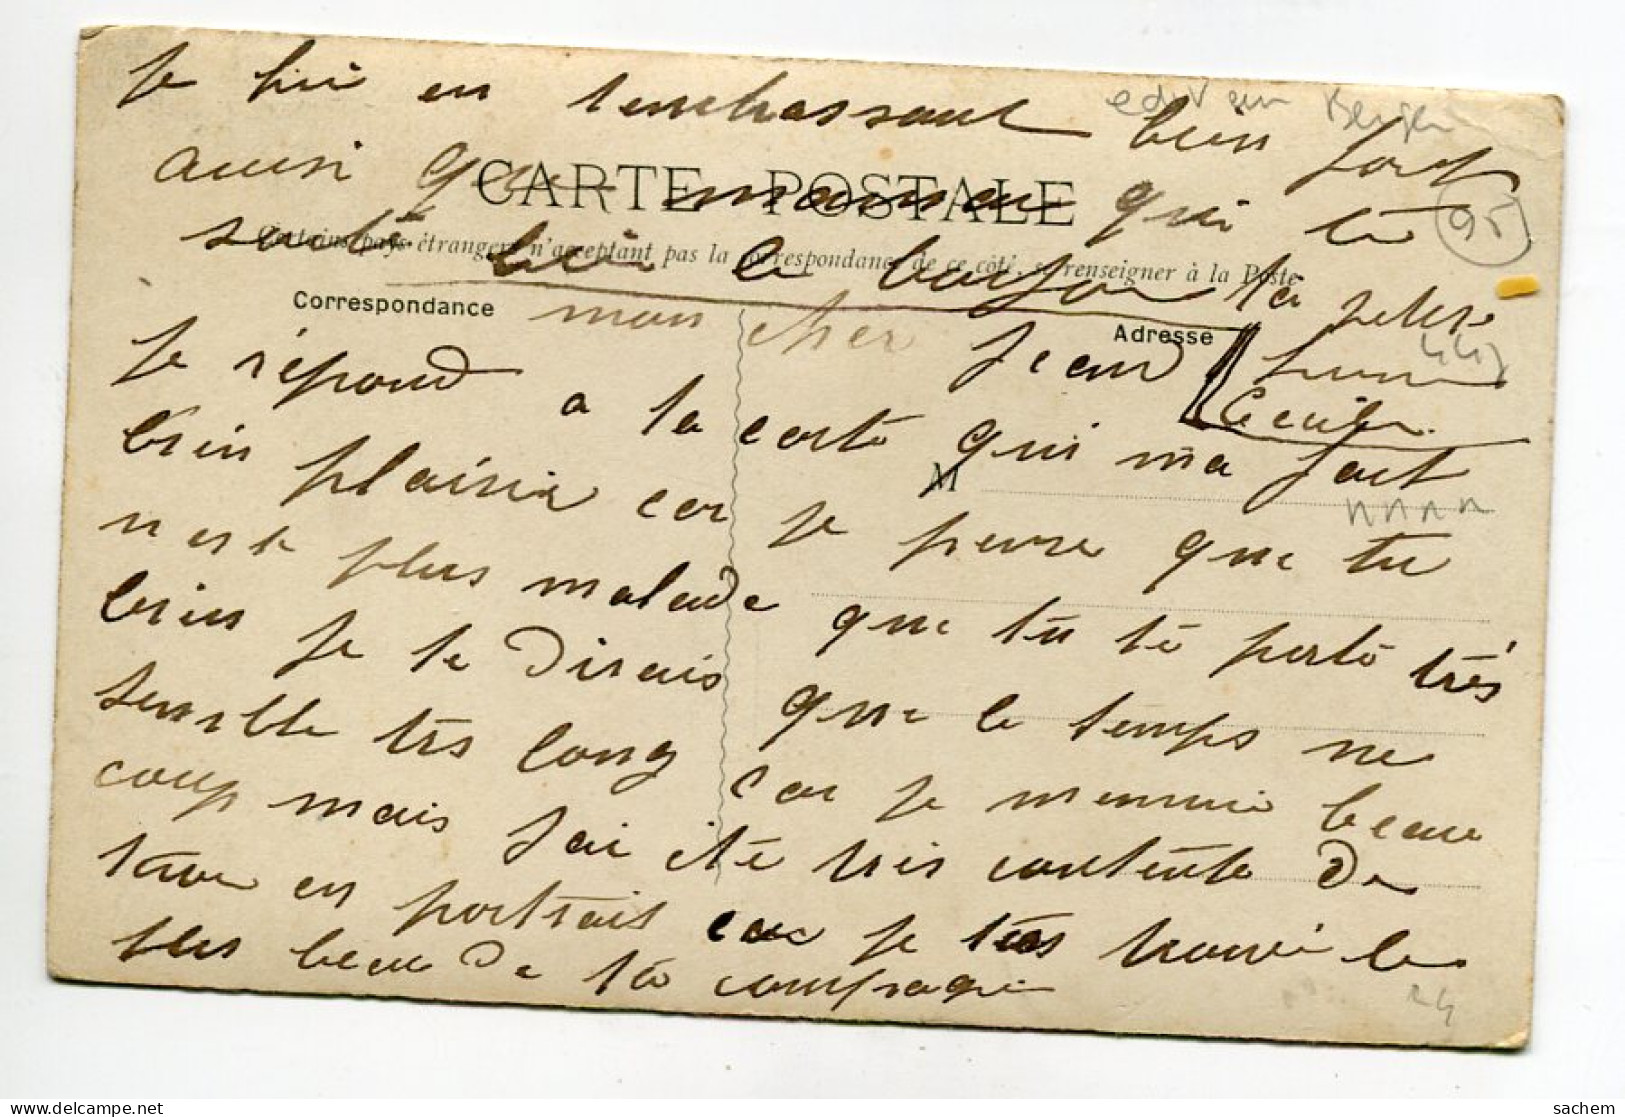 Je fini en t'enbrassant bien fort
aussi que maman qui te
souhé bien le bonjour ta petite
Cecile.
CARTE POSTALE
Certains pays étrangers n'acceptant pas la correspondance de ce côté, se renseigner à la Poste
Correspondance
Adresse
M
mon cher Jean
Je répond a ta carte qui ma fait
bien plaisir car je pense que tu
n est plus malade que tu te porte très
bien je te dirais que le temps me
semble très long car je mennuie beau
coup mais jai été très contente de
ton en portrait car je tes trouvé le
plus beau de ta compagnie
95
24
sachem